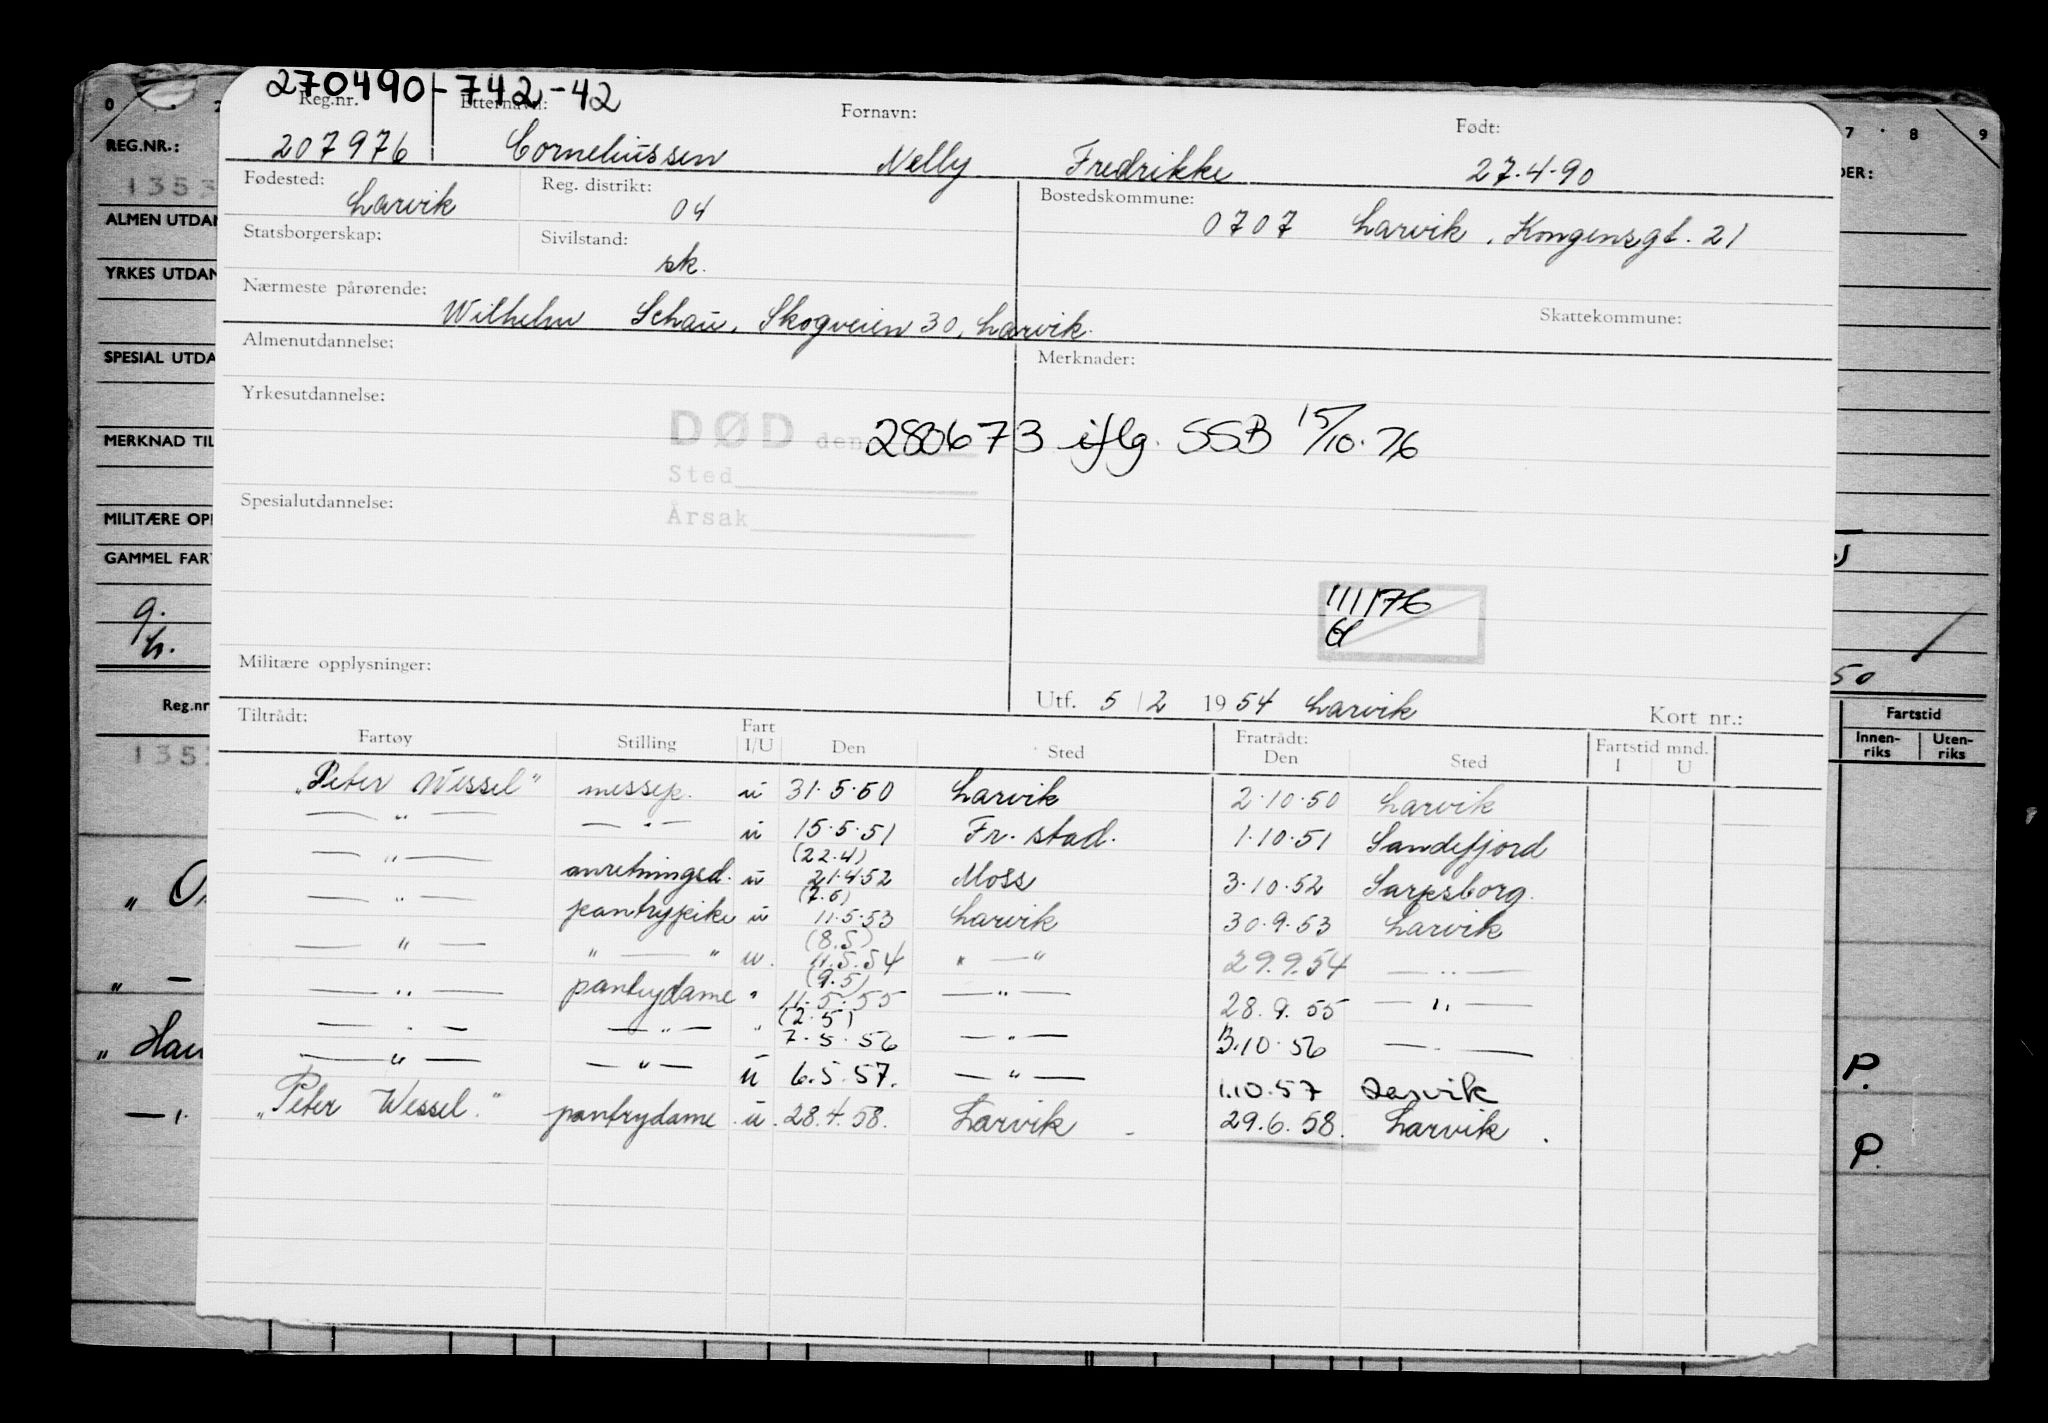 270490-742-42
Reg.nr. Etternavn: Fornavn: Født:
207976 Corneliussen Nelly Fredrikke 27.4.90
Fødested: Reg. distrikt: Bostedskommune:
Larvik 04 0707 Larvik, Kongensgt. 21
Statsborgerskap: Sivilstand:
sk.
Nærmeste pårørende: Skattekommune:
Wilhelm Schau, Skogveien 30, Larvik.
Almenutdannelse: Merknader:
Yrkesutdannelse:
DØD den 280673 iflg. SSB 15/10.76
Sted
Spesialutdannelse:
Årsak
1/11 76
Militære opplysninger:
Utf. 5/2 1954 Larvik Kort nr.:
Tiltrådt: Fart Fratrådt: Fartstid mnd.
Fartøy Stilling I/U Den Sted Den Sted I U
"Peter Wessel" messep. u 31.5.50 Larvik 2.10.50 Larvik
— " — — " — u 15.5.51 Fr.stad. 1.10.51 Sandefjord
(22.4)
— " — anretningsd. u 21.4.52 Moss 3.10.52 Sarpsborg.
(7.5)
— " — pantrypike u 11.5.53 Larvik 30.9.53 Larvik
(8.5)
— " — " — " u. 11.5.54 " — " 29.9.54 — " —
(9.5)
— " — pantrydame " 11.5.55 — " — 28.9.55 — " —
(2.5)
— " — — " — " 7.5.56 — " — 3.10.56 — " —
— " — — " — u 6.5.57. — " — 1.10.57 Larvik
"Peter Wessel." pantrydame u. 28.4.58. Larvik 29.6.58. Larvik.
0 7 8 9
REG.NR.:
1353
ALMEN UTDAN
YRKES UTDAN
SPESIAL UTDA
MERKNAD TIL
MILITÆRE OPP
GAMMEL FAR
g.
h.
50
Reg.nr
1353
Fartstid
Innen-riks Uten-riks
" Hau
P.
P.